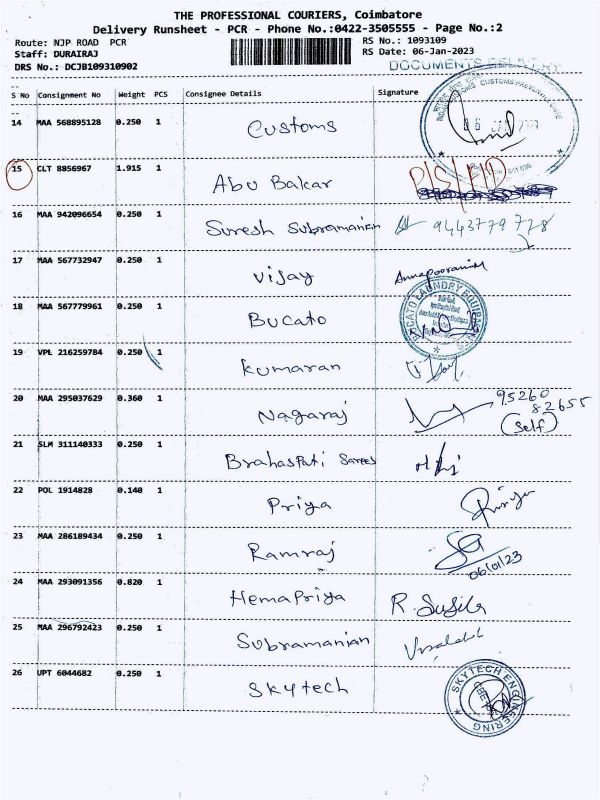 THE PROFESSIONAL COURIERS, Coimbatore
Delivery Runsheet - PCR - Phone No.:0422-3505555 - Page No.:2
Route: NJP ROAD PCR
RS No.: 1093109
Staff: DURAIRAJ
RS Date: 06-Jan-2023
DRS No.: DCJB109310902
DOCUMENTS DELIVERY
S No Consignment No Weight PCS Consignee Details Signature
14 MAA 568895128 0.250 1 Customs
15 CLT 8856967 1.915 1 Abu Bakar
16 MAA 942096654 0.250 1 Suresh Subramanian 9443779778
17 MAA 567732947 0.250 1 Vijay Annapoorani M
18 MAA 567779961 0.250 1 Bucato
BUCATO LAUNDRY EQUIPMENT
19 VPL 216259784 0.250 1 Kumaran
20 MAA 295037629 0.360 1 Nagaraj 95260
82655
(Self)
21 SLM 311140333 0.250 1 Brahaspati Sarees
22 POL 1914828 0.140 1 Priya Priya
23 MAA 286189434 0.250 1 Ramraj
06/01/23
24 MAA 293091356 0.820 1 HemaPriya R. Susila
25 MAA 296792423 0.250 1 Subramanian
26 UPT 6044682 0.250 1 Skytech
SKYTECH ENGINEERING
CBE